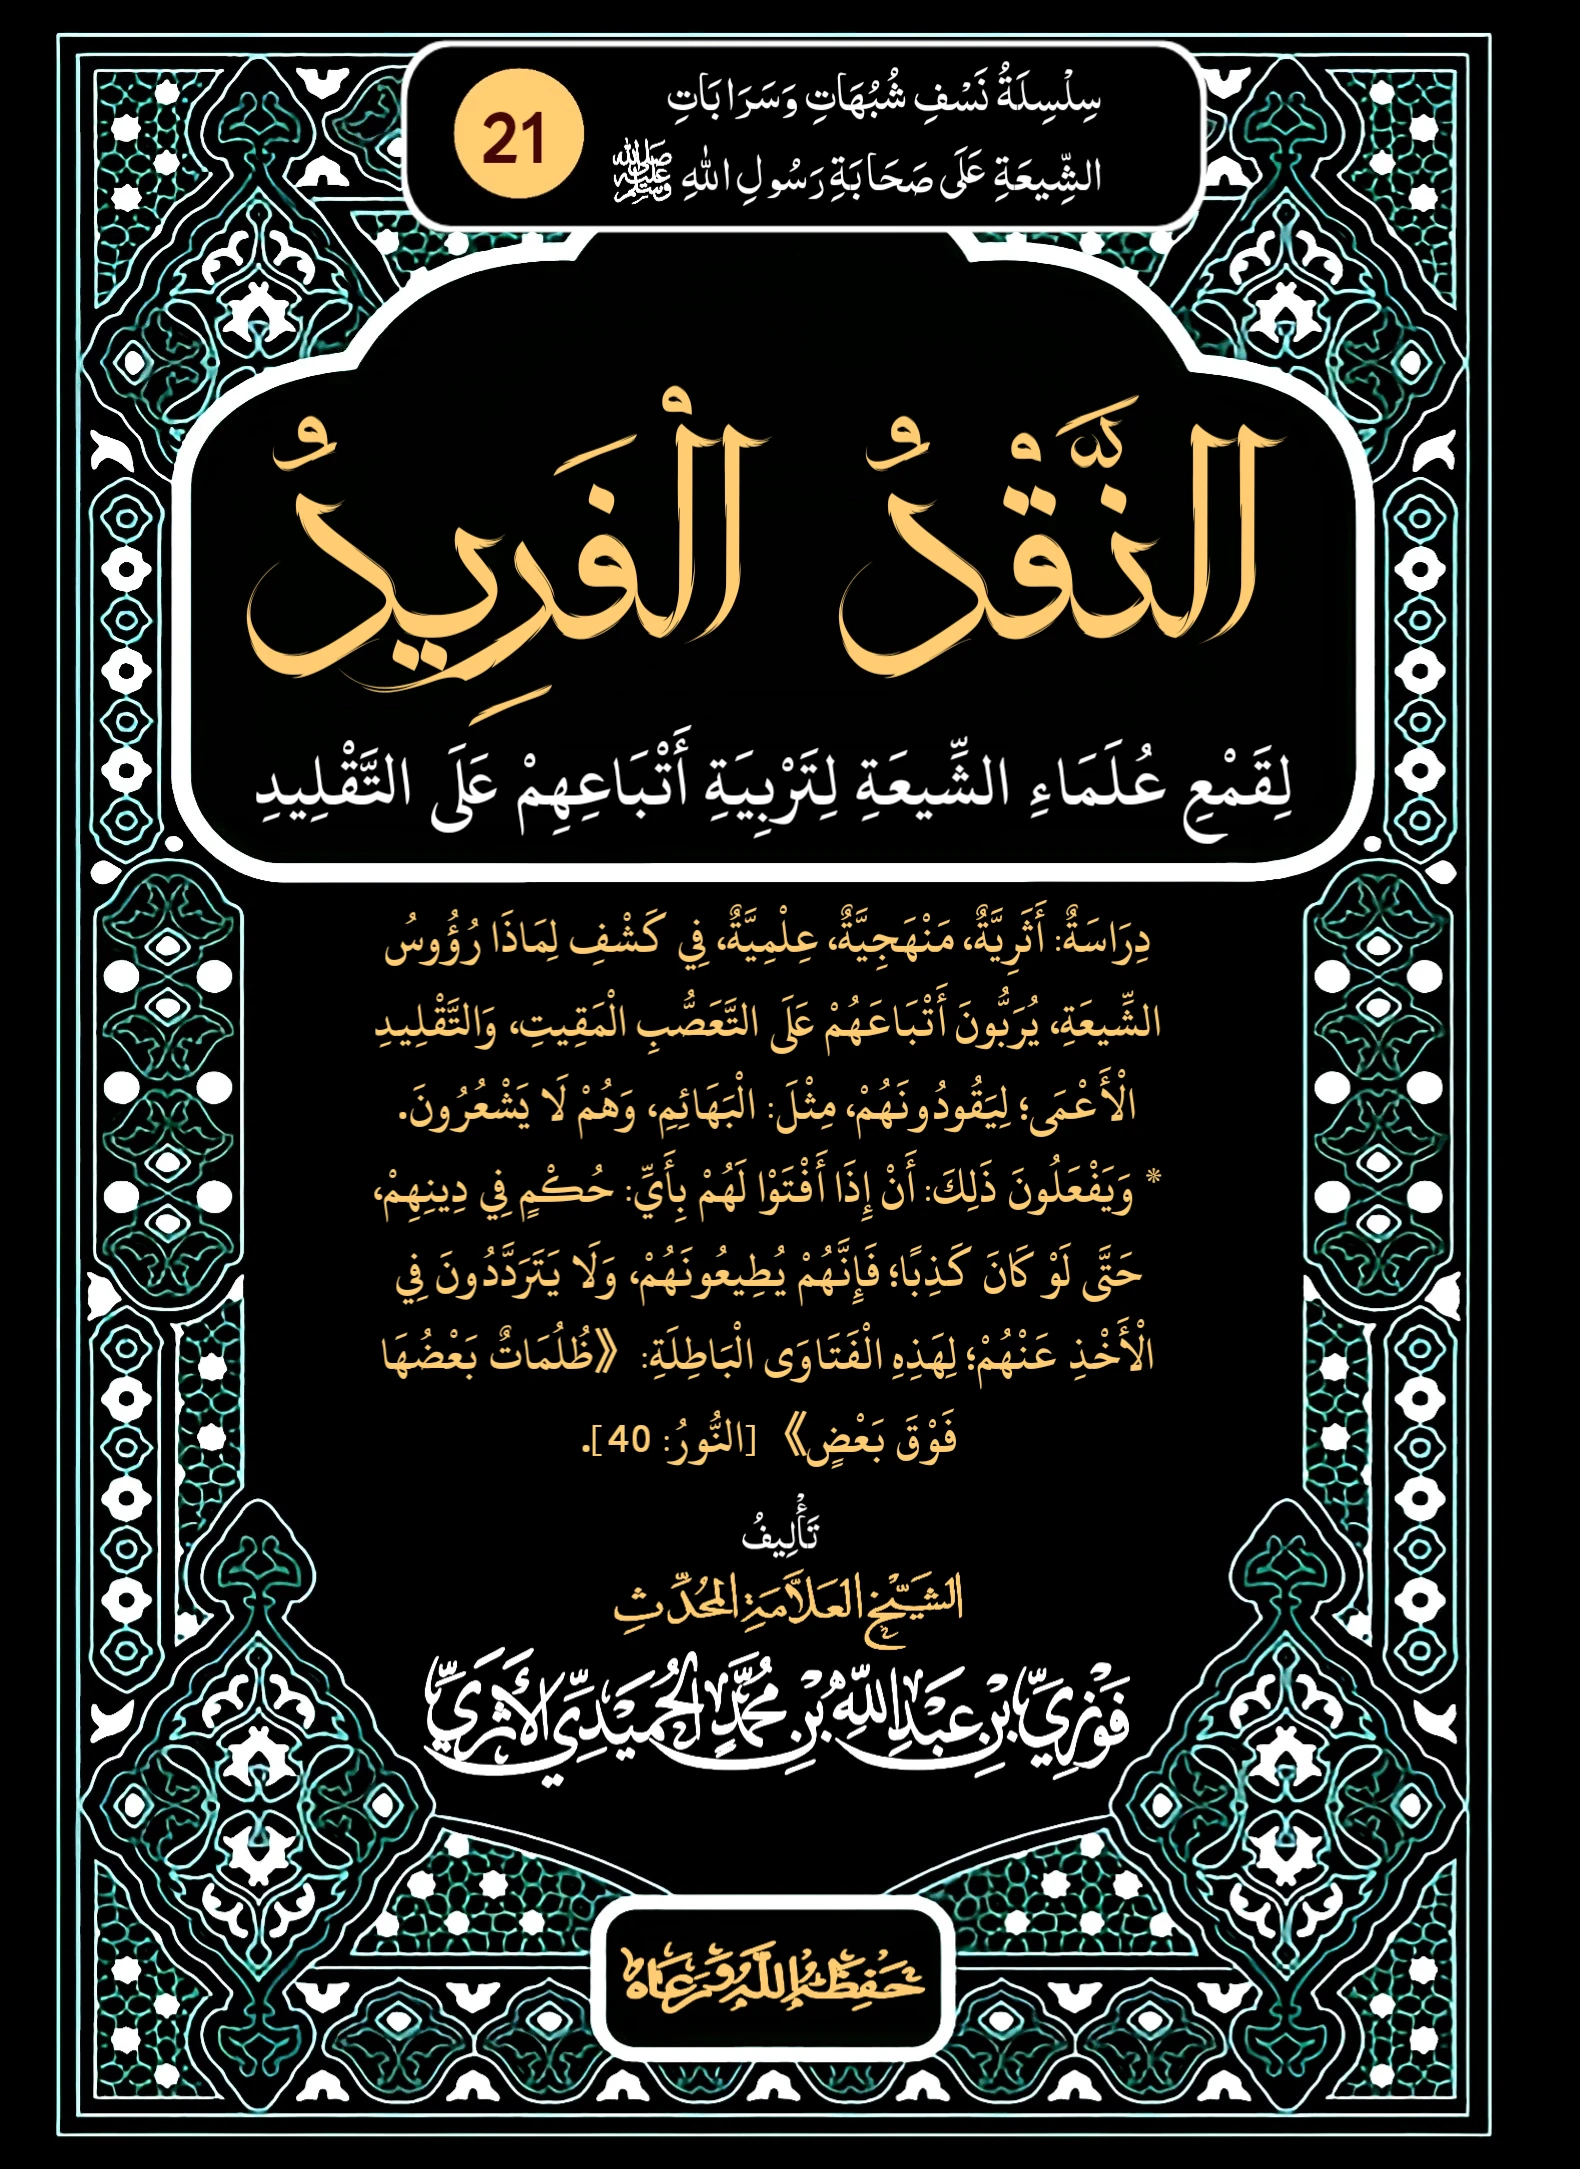 سِلْسِلَةُ نَسْفِ شُبُهَاتِ وَسَرَابَاتِ
الشِّيعَةِ عَلَى صَحَابَةِ رَسُولِ اللهِ ﷺ
21
النَّقْدُ الْفَرِيدُ
لِقَمْعِ عُلَمَاءِ الشِّيعَةِ لِتَرْبِيَةِ أَتْبَاعِهِمْ عَلَى التَّقْلِيدِ
دِرَاسَةٌ: أَثَرِيَّةٌ، مَنْهَجِيَّةٌ، عِلْمِيَّةٌ، فِي كَشْفِ لِمَاذَا رُؤُوسُ
الشِّيعَةِ، يُرَبُّونَ أَتْبَاعَهُمْ عَلَى التَّعَصُّبِ الْمَقِيتِ، وَالتَّقْلِيدِ
الْأَعْمَى؛ لِيَقُودُونَهُمْ، مِثْلَ: الْبَهَائِمِ، وَهُمْ لَا يَشْعُرُونَ.
* وَيَفْعَلُونَ ذَلِكَ: أَنْ إِذَا أَفْتَوْا لَهُمْ بِأَيِّ: حُكْمٍ فِي دِينِهِمْ،
حَتَّى لَوْ كَانَ كَذِبًا؛ فَإِنَّهُمْ يُطِيعُونَهُمْ، وَلَا يَتَرَدَّدُونَ فِي
الْأَخْذِ عَنْهُمْ؛ لِهَذِهِ الْفَتَاوَى الْبَاطِلَةِ: ﴿ظُلُمَاتٌ بَعْضُهَا
فَوْقَ بَعْضٍ﴾ [النُّورُ: 40].
تَأْلِيفُ
الشَّيْخِ العَلَّامَةِ المُحَدِّثِ
فَوْزِيِّ بْنِ عَبْدِ اللَّهِ بْنِ مُحَمَّدٍ الحُمَيْدِيِّ الأَثَرِيِّ
حَفِظَهُ اللَّهُ وَرَعَاهُ